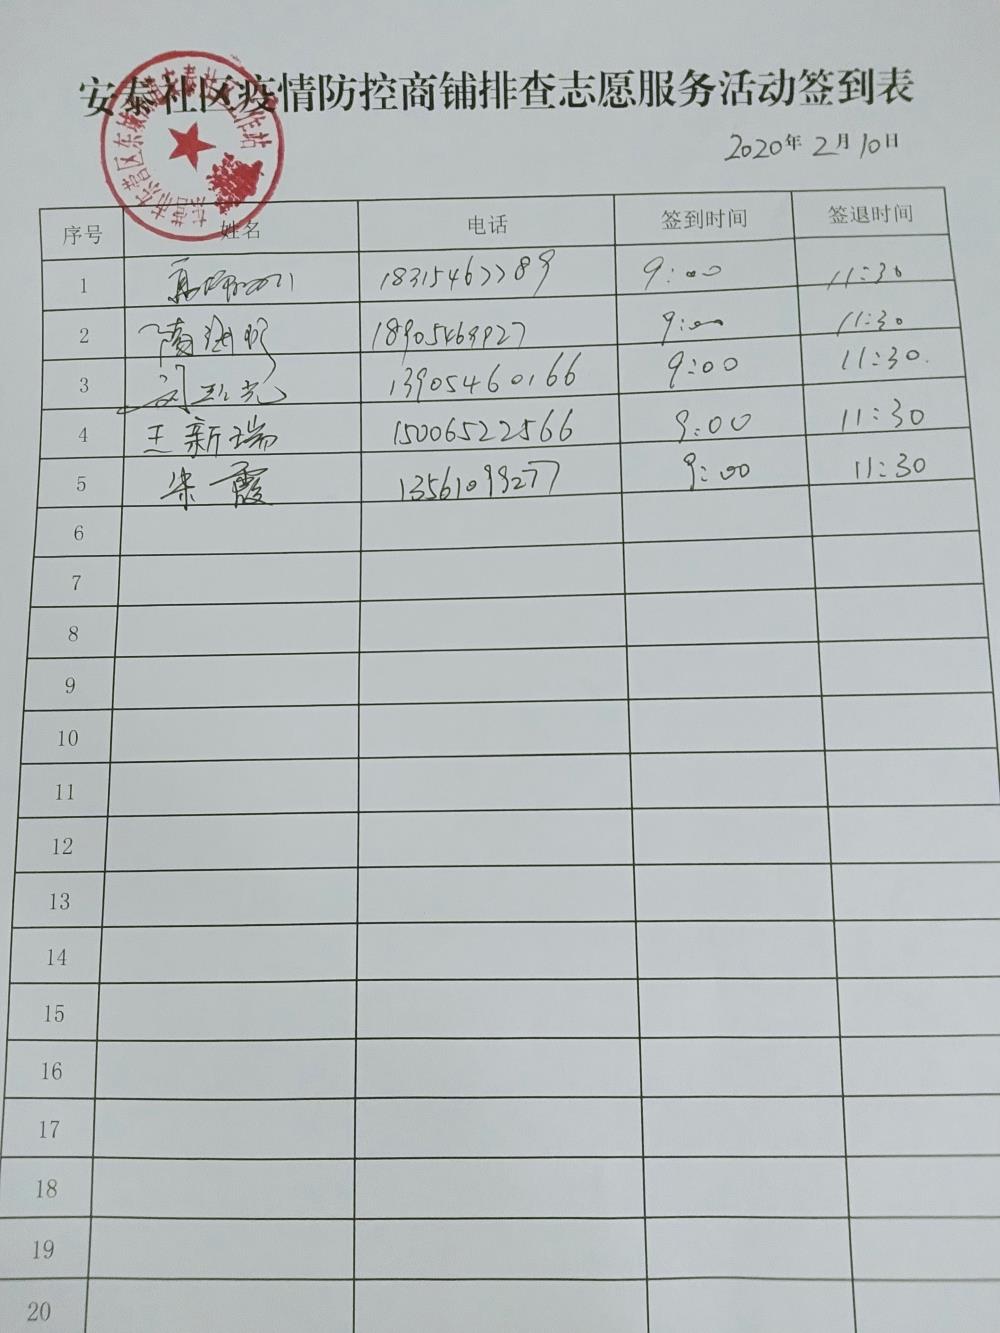 安泰社区疫情防控商铺排查志愿服务活动签到表
2020年 2月10日
序号 姓名 电话 签到时间 签退时间
1 18315467789 9:00 11:30
2 18905469927 9:00 11:30
3 刘 光 13905460166 9:00 11:30.
4 王新瑞 15006522566 9:00 11:30
5 宋霞 13561099277 9:00 11:30
6
7
8
9
10
11
12
13
14
15
16
17
18
19
20